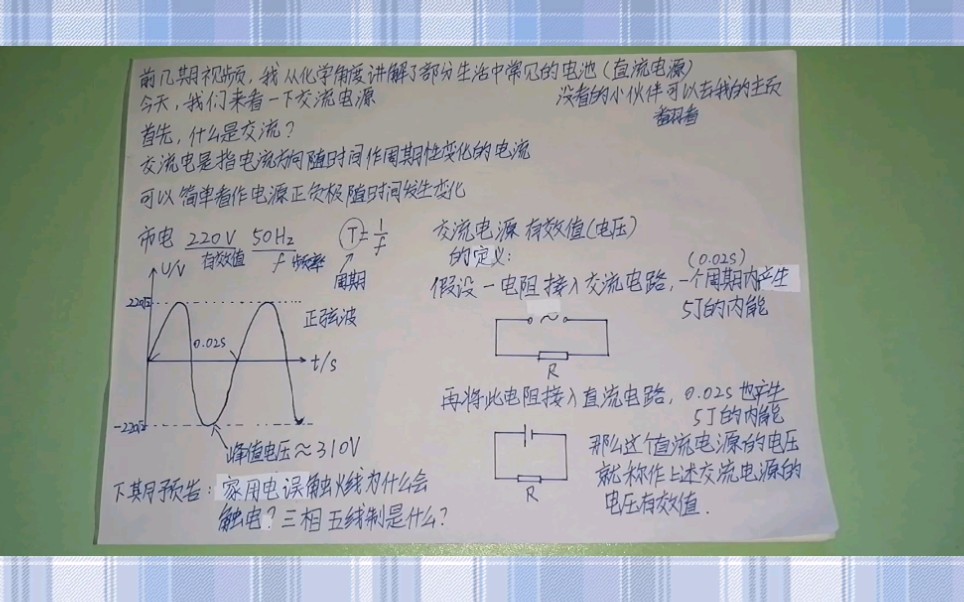 前几期视频，我从化学角度讲解了部分生活中常见的电池（直流电源）
今天，我们来看一下交流电源
没看的小伙伴可以去我的主页
看看
首先，什么是交流？
交流电是指电流方向随时间作周期性变化的电流
可以简单看作电源正负极随时间发生变化
市电 220V 50Hz T=1/f
有效值 f 频率
周期
U/V
220√2
正弦波
0.02s
t/s
-220√2
峰值电压≈310V
交流电源有效值（电压）
的定义：
(0.02s)
假设一电阻接入交流电路，一个周期内产生
5J的内能
~
R
再将此电阻接入直流电路，0.02s也产生
5J的内能
R
那么这个直流电源的电压
就称作上述交流电源的
电压有效值.
下期预告：家用电误触火线为什么会
触电？三相五线制是什么？